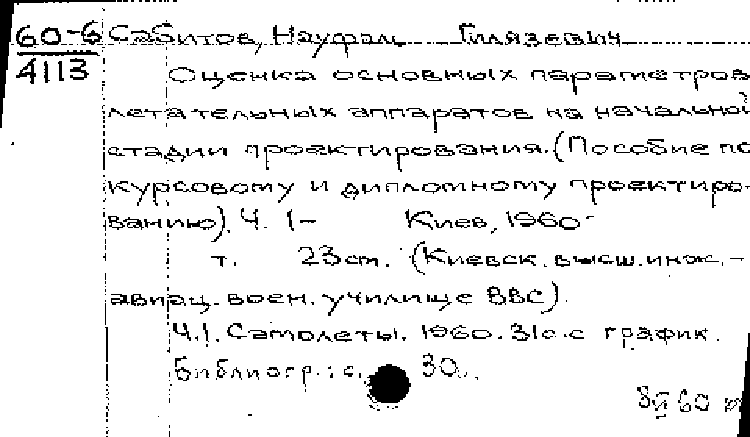 60-6 Сабитов, Науфал Гилязевич
4113 Оценка основных параметров
летательных аппаратов на начальной
стадии проектирования. (Пособие по
курсовому и дипломному проектиро-
ванию). Ч. 1- Киев, 1960-
т. 23 см. (Киевск. высш. инж.-
авиац. воен. училище ВВС).
Ч.1. Самолеты. 1960. 31 с. с график.
Библиогр.: с. 30.
60